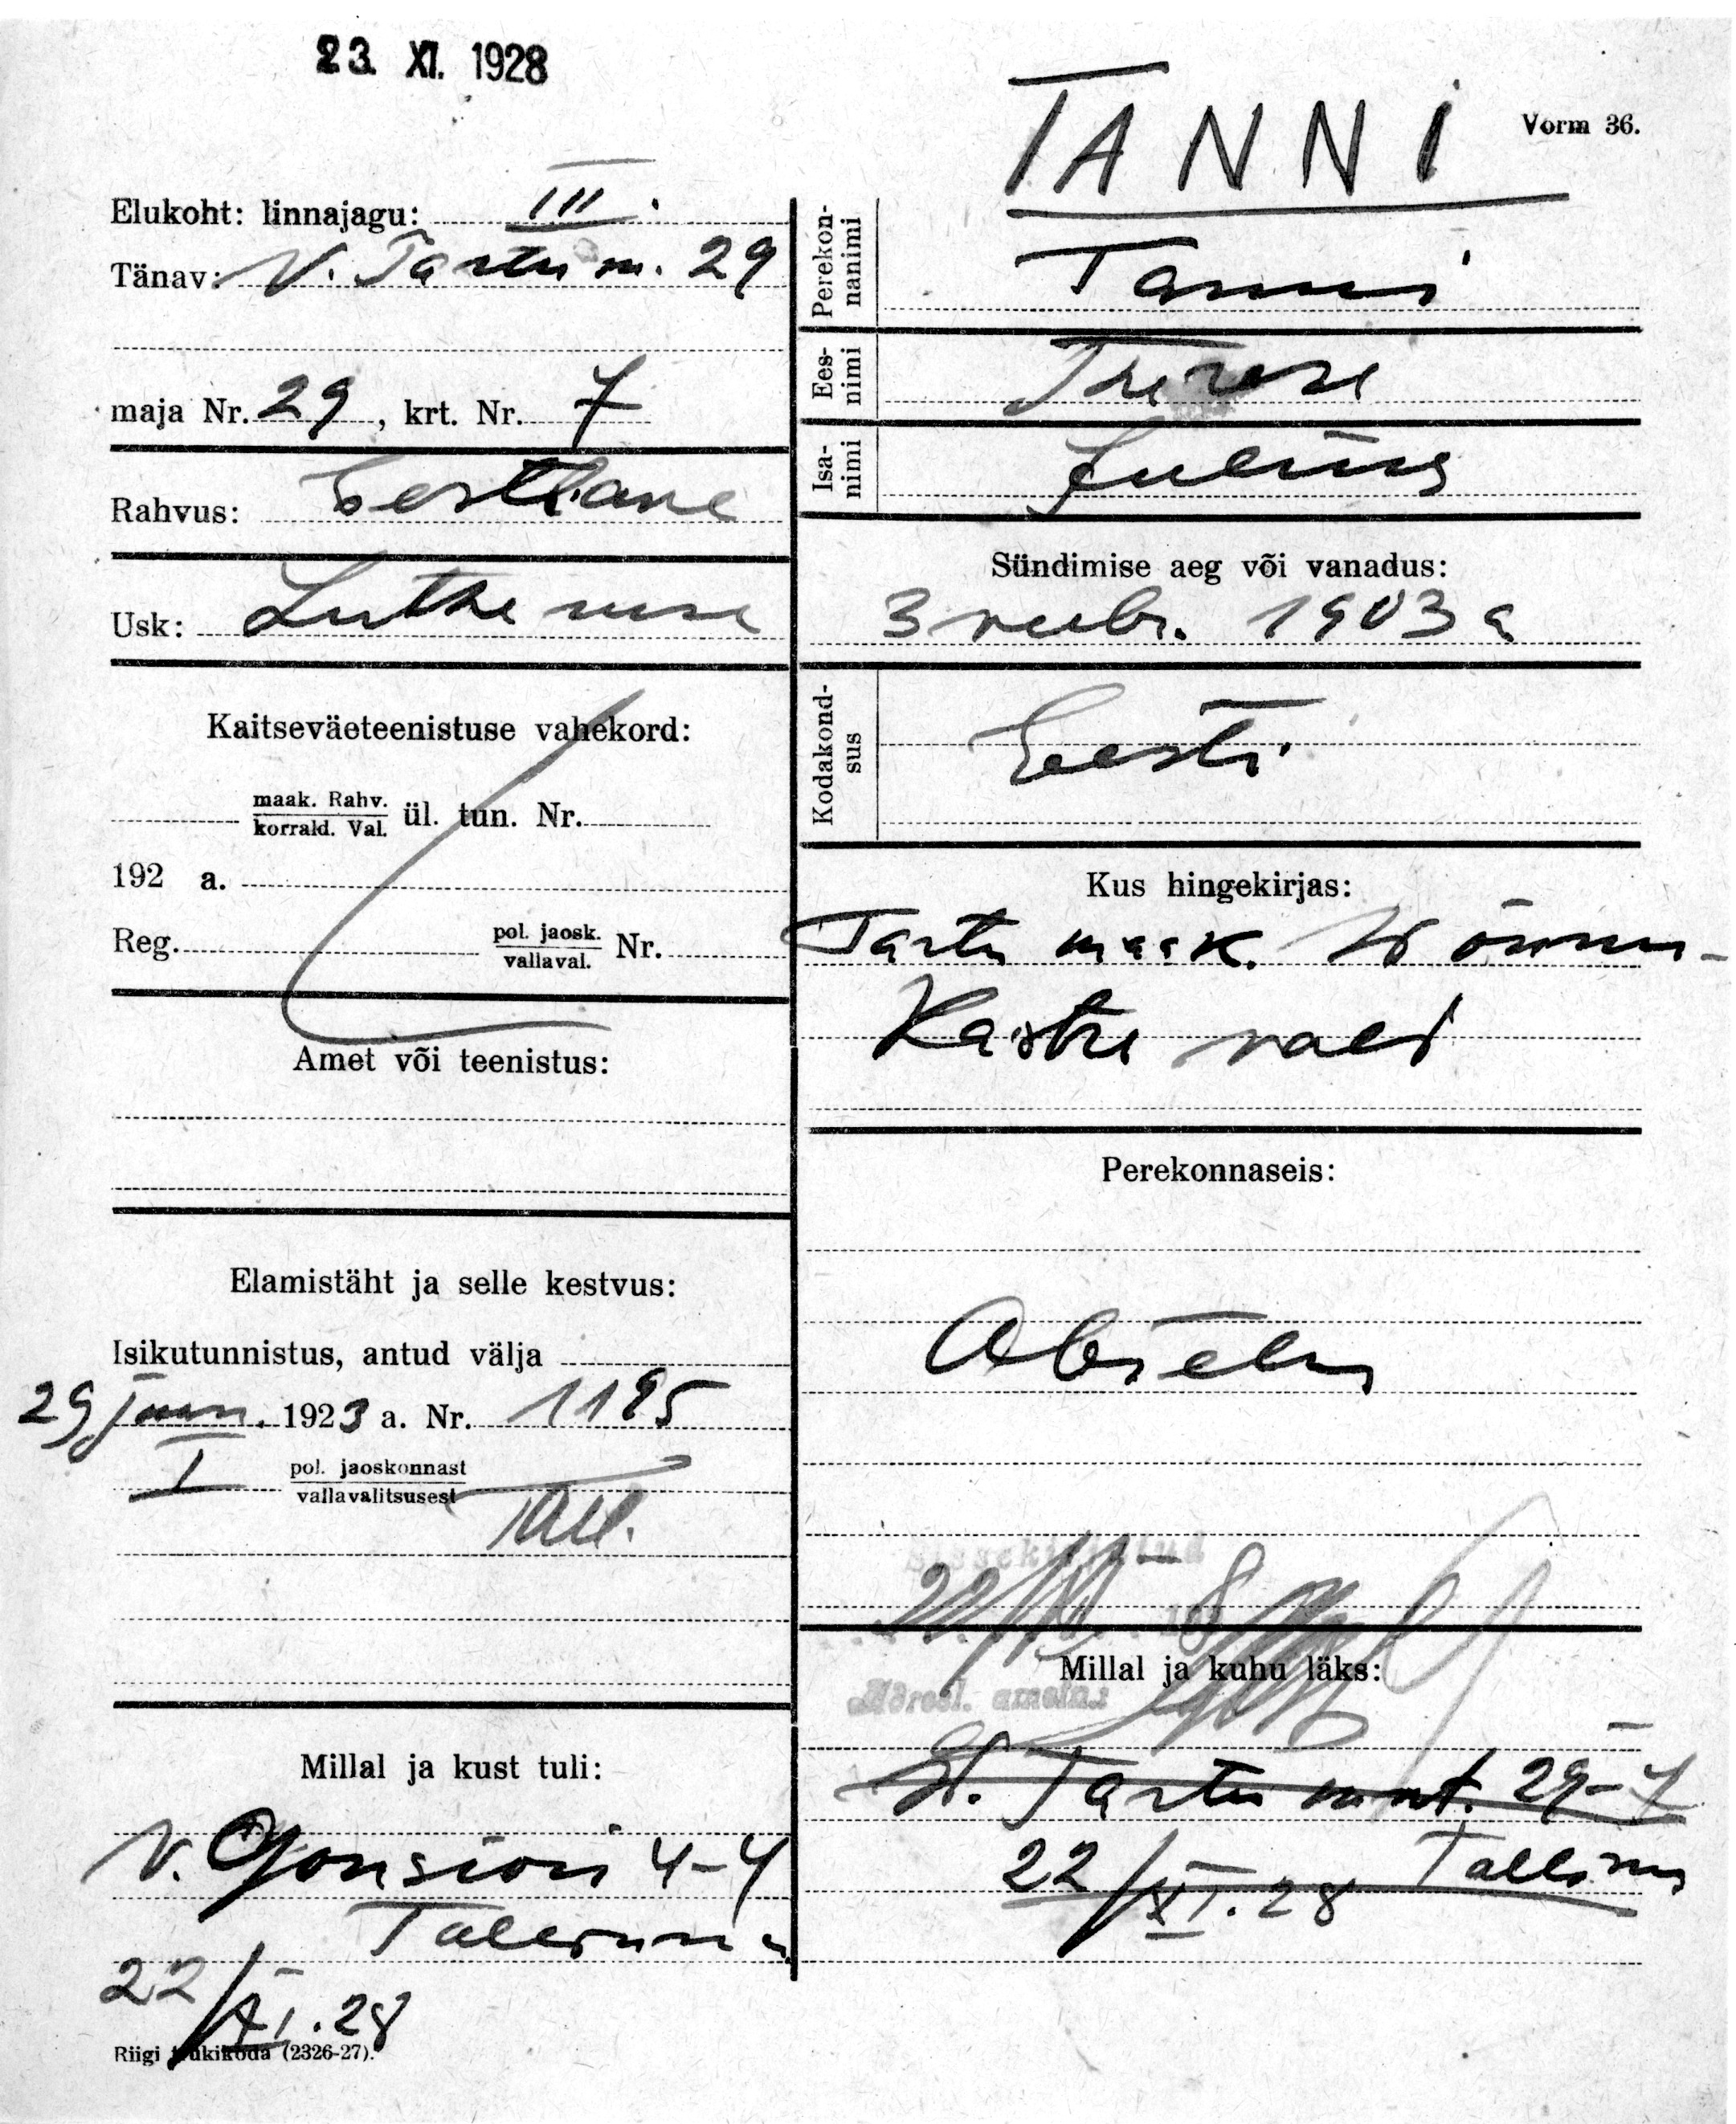 23. XI. 1928
TANNI
Vorm 36.
Elukoht: linnajagu: III.
Tänav: V. Tartu m. 29
maja Nr. 29, krt. Nr. 7
Rahvus: Eestlane
Usk: Lutheruse
Kaitseväeteenistuse vahekord:
maak. Rahv.
korrald. Val. ül. tun. Nr.
192 a.
Reg. pol. jaosk.
vallaval. Nr.
Amet või teenistus:
Elamistäht ja selle kestvus:
Isikutunnistus, antud välja
29 juun. 1923 a. Nr. 1195
I pol. jaoskonnast
vallavalitsusest Tall.
Millal ja kust tuli:
V. Gonsiori 4-4
Tallinna
22/XI.28
Riigi trükikoda (2326-27).
Perekonnanimi
Tanni
Eesnimi
Therese
Isanimi
Julius
Sündimise aeg või vanadus:
3 veebr. 1903 a
Kodakondsus
Eesti
Kus hingekirjas:
Tartu maak. Wõnnu-
Kastre vald
Perekonnaseis:
Abielus
Sissekirjutud
22/XI 8
Millal ja kuhu läks:
Tartu mnt. 29-7
22/XI.28 Tallinn